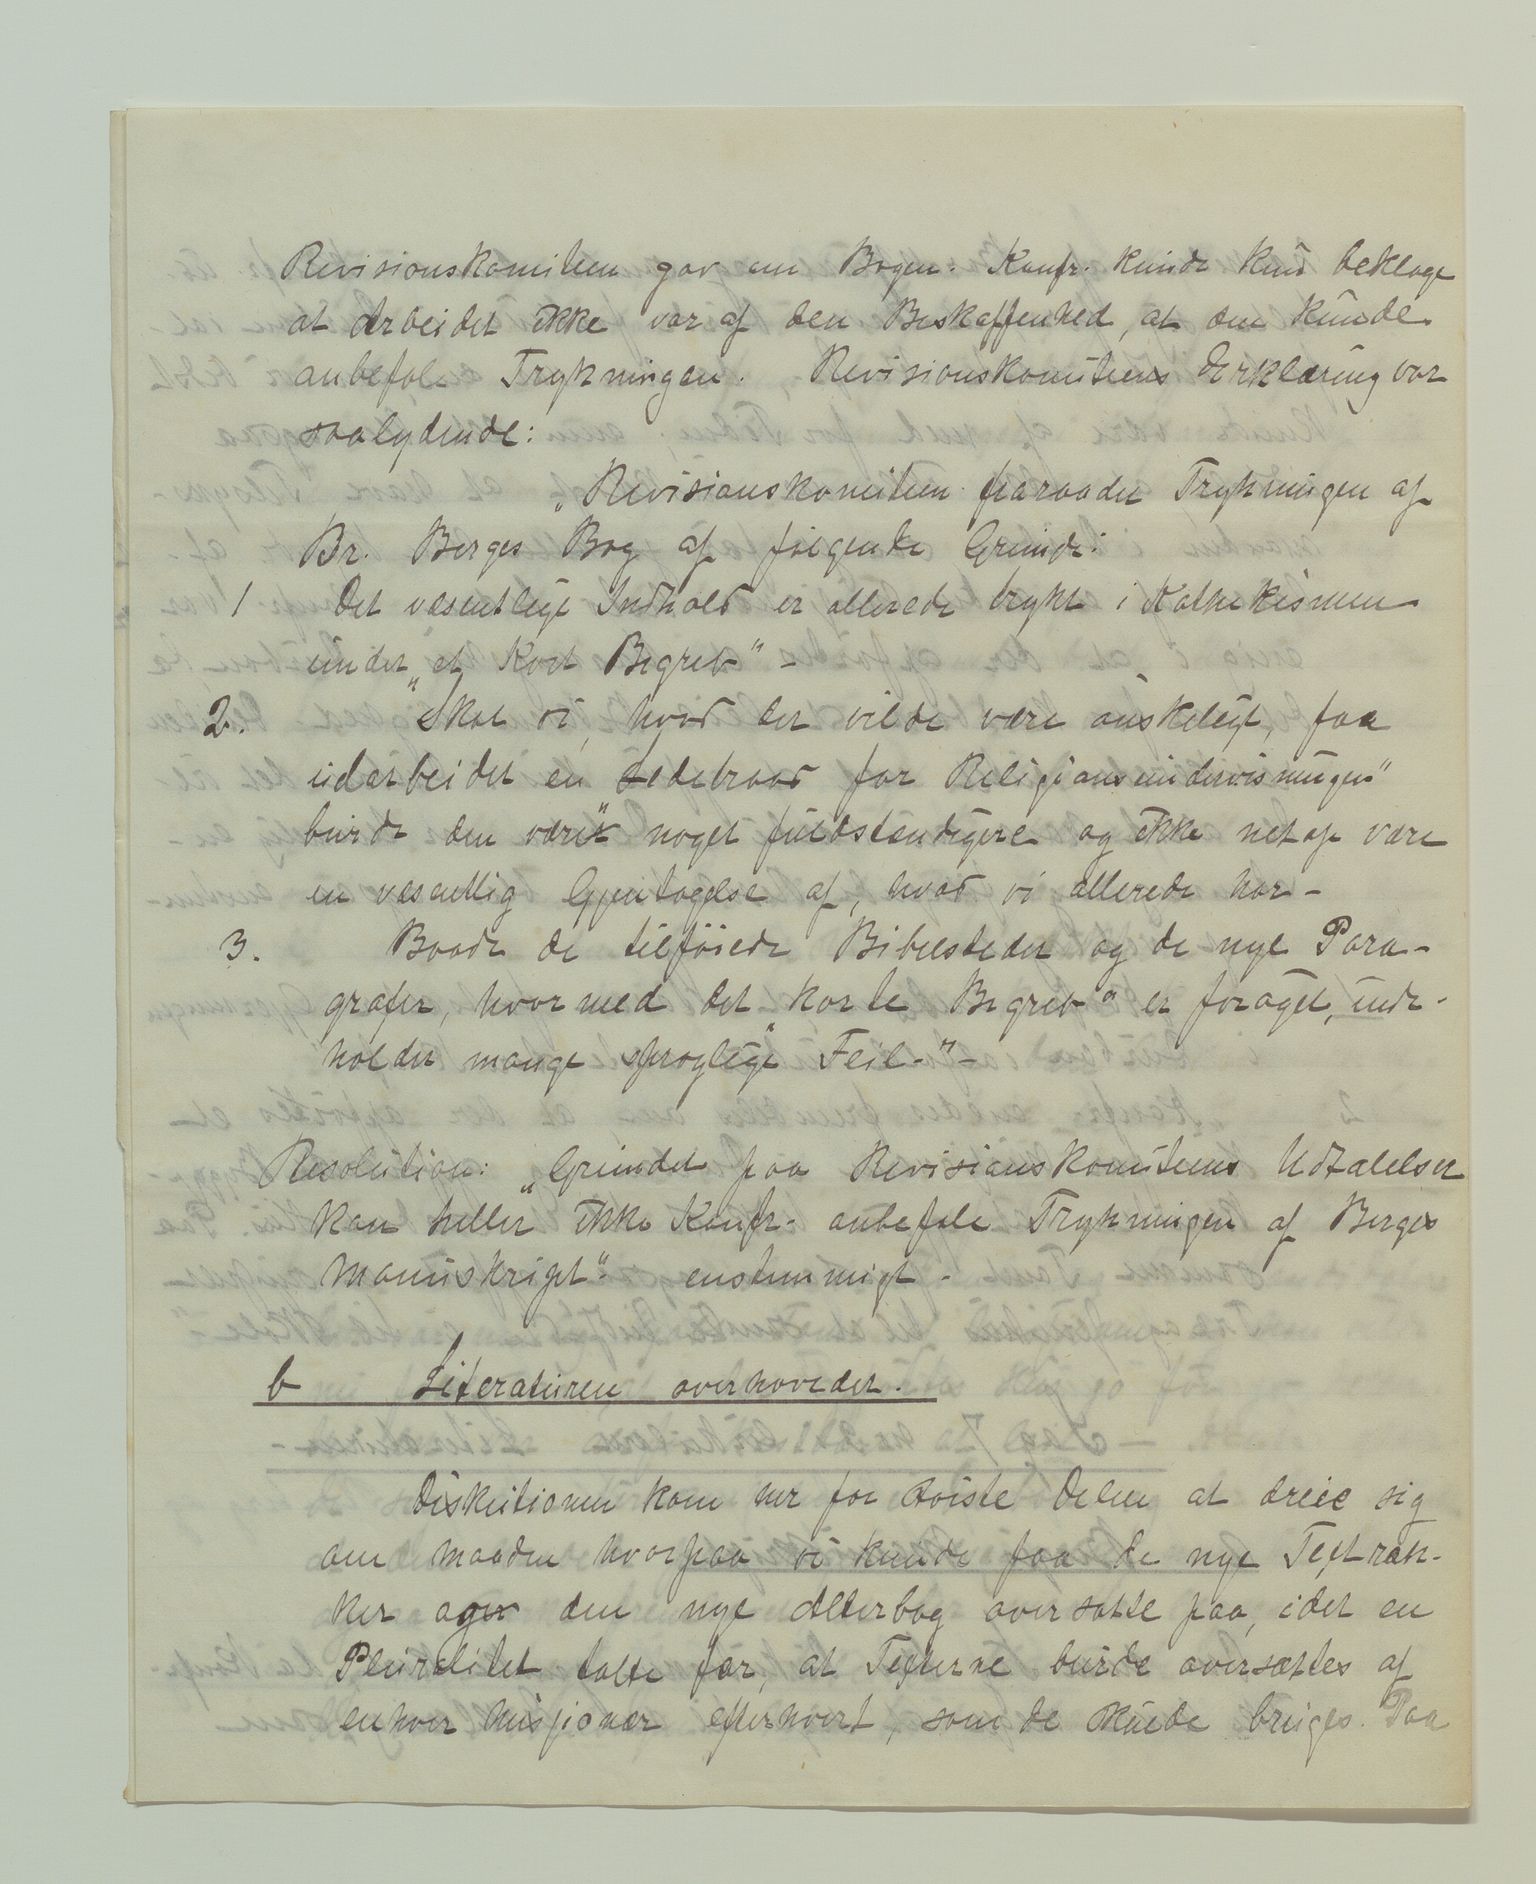 Revisionskomiteen gav om Bogen. Konfr. kunde kun beklage
at Arbeidet ikke var af den Beskaffenhed, at den kunde
anbefale Trykningen. Revisionskomiteens Erklæring var
saalydende:
„Revisionskomiteen fraraader Trykningen af
Br. Borges Bog af følgende Grunde:
1 Det væsentlige Indhold er allerede trykt i Katkekismen
under „et Kort Begreb" -
2. Skal vi, hvad det vilde være ønskeligt, faa
udarbeidet en „Ledetraad for Religionsundervisningen"
burde den være noget fuldstændigere og ikke netop være
en væsentlig Gjentagelse af, hvad vi allerede har -
3. Baade de tilføiede Bibelsteder og de nye Para-
grafer, hvormed det „korte Begreb" er forøget, inde-
holder mange sproglige Feil -" -
Resolution: „Grundet paa Revisionskomiteens Udtalelser
kan heller ikke Konfr. anbefale Trykningen af Borges
Manuskript". enstemmigt -
b Literaturen overhovedet.
Diskutionen kom her for største Delen at dreie sig
om Maaden hvorpaa vi kunde faa de nye Textræk-
ker og den nye Alterbog oversatte paa, idet en
Pluralitet talte for, at Texterne burde oversættes af
enhver Missjonær efterhvert, som de skulde bruges. Paa